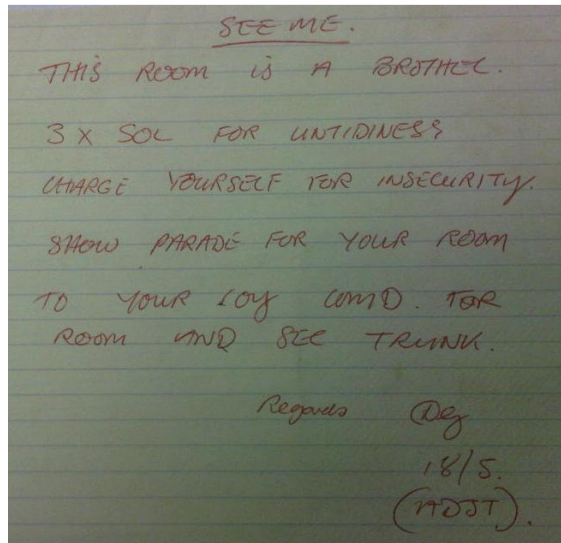 SEE ME.
THIS ROOM is A BROTHEL.
3 X SOL FOR UNTIDINESS
CHARGE YOURSELF FOR INSECURITY.
SHOW PARADE FOR YOUR ROOM
TO YOUR COY COMD. FOR
ROOM AND SEC TRUNK.
Regards
18/5.
(ADJT).